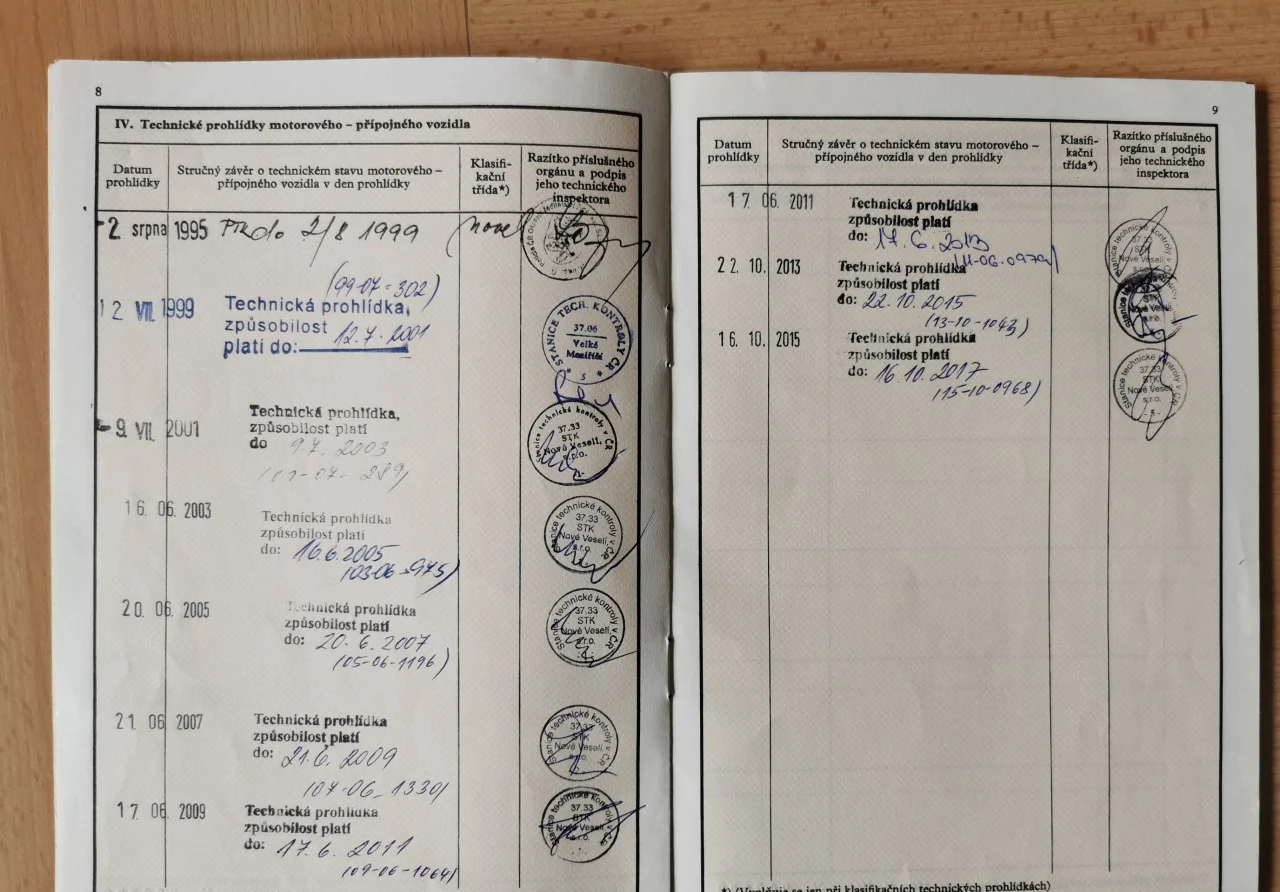 8
IV. Technické prohlídky motorového – přípojného vozidla
Datum prohlídky
Stručný závěr o technickém stavu motorového –
přípojného vozidla v den prohlídky
Klasifi-
kační
třída*)
Razítko příslušného
orgánu a podpis
jeho technického
inspektora
-2. srpna 1995 do 2/8 1999
12 VII. 1999
(99-07-302)
Technická prohlídka,
způsobilost 12.7.2001
platí do:
STANICE TECH. KONTROLY ČR
37.06
Velké
Meziříčí
5
-9. VII. 2001
Technická prohlídka,
způsobilost platí
do 9.7.2003
(01-07-289)
Stanice technické kontroly v ČR
37.33
STK
Nové Veselí,
s.r.o.
16. 06. 2003
Technická prohlídka
způsobilost platí
do: 16.6.2005
(03-06-975)
Stanice technické kontroly v ČR
37.33
STK
Nové Veselí
s.r.o.
20. 06. 2005
Technická prohlídka
způsobilost platí
do: 20.6.2007
(05-06-1196)
Stanice technické kontroly v ČR
37.33
STK
Nové Veselí,
s.r.o.
21 06 2007
Technická prohlídka
způsobilost platí
do: 21.6.2009
(07-06-1330)
Stanice technické kontroly v ČR
37.33
Nové Veselí
s.r.o.
17 06. 2009
Technická prohlídka
způsobilost platí
do: 17.6.2011
(09-06-1064)
Stanice technické kontroly v ČR
37.33
STK
Nové Veselí,
s.r.o.
9
Datum
prohlídky
Stručný závěr o technickém stavu motorového –
přípojného vozidla v den prohlídky
Klasifi-
kační
třída*)
Razítko příslušného
orgánu a podpis
jeho technického
inspektora
17 06. 2011
Technická prohlídka
způsobilost platí
do: 17.6.2013
Stanice technické kontroly v ČR
37.33
STK
Nové Veselí
22. 10. 2013
Technická prohlídka
způsobilost platí
do: 22.10.2015
(13-10-1043)
16. 10. 2015
Technická prohlídka
způsobilost platí
do: 16.10.2017
(15-10-0968)
Stanice technické kontroly v ČR
37.33
STK
Nové Veselí
s.r.o.
- 5 -
*) (Vyplňuje se jen při klasifikačních technických prohlídkách)